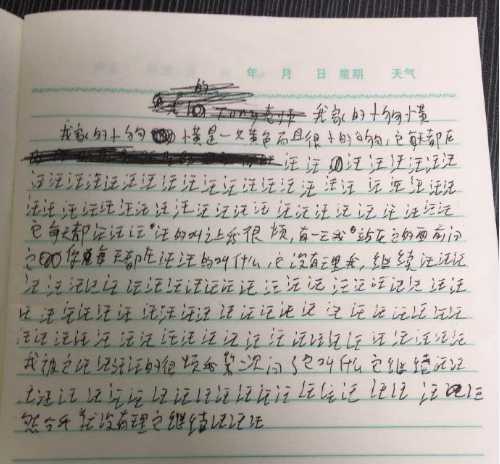 年 月 日 星期 天气
的
我家的小狗横
我家的小狗小横是一只黄色而且很小的小狗,它每天都在
汪汪汪汪汪汪汪汪
汪汪汪汪汪汪汪汪汪汪汪汪汪汪汪汪汪汪汪汪汪汪
汪汪汪汪汪汪汪汪汪汪汪汪汪汪汪汪汪汪汪汪汪汪
它每天都汪汪汪汪的叫让我很烦,有一天我站在它的面前问
它你每天都在汪汪的叫什么,它没有理我,继续汪汪汪
汪汪汪汪汪汪汪汪汪汪汪汪汪汪汪汪汪汪汪汪汪汪
汪汪汪汪汪汪汪汪汪汪汪汪汪汪汪汪汪汪汪汪汪汪
汪汪汪汪汪汪汪汪汪汪汪汪汪汪汪汪汪汪汪汪汪汪
我被它汪汪汪汪的很烦我第二次问了它叫什么它继续汪汪
汪汪汪汪汪汪汪汪汪汪汪汪汪汪汪汪汪汪汪汪
我没有理它继续汪汪汪